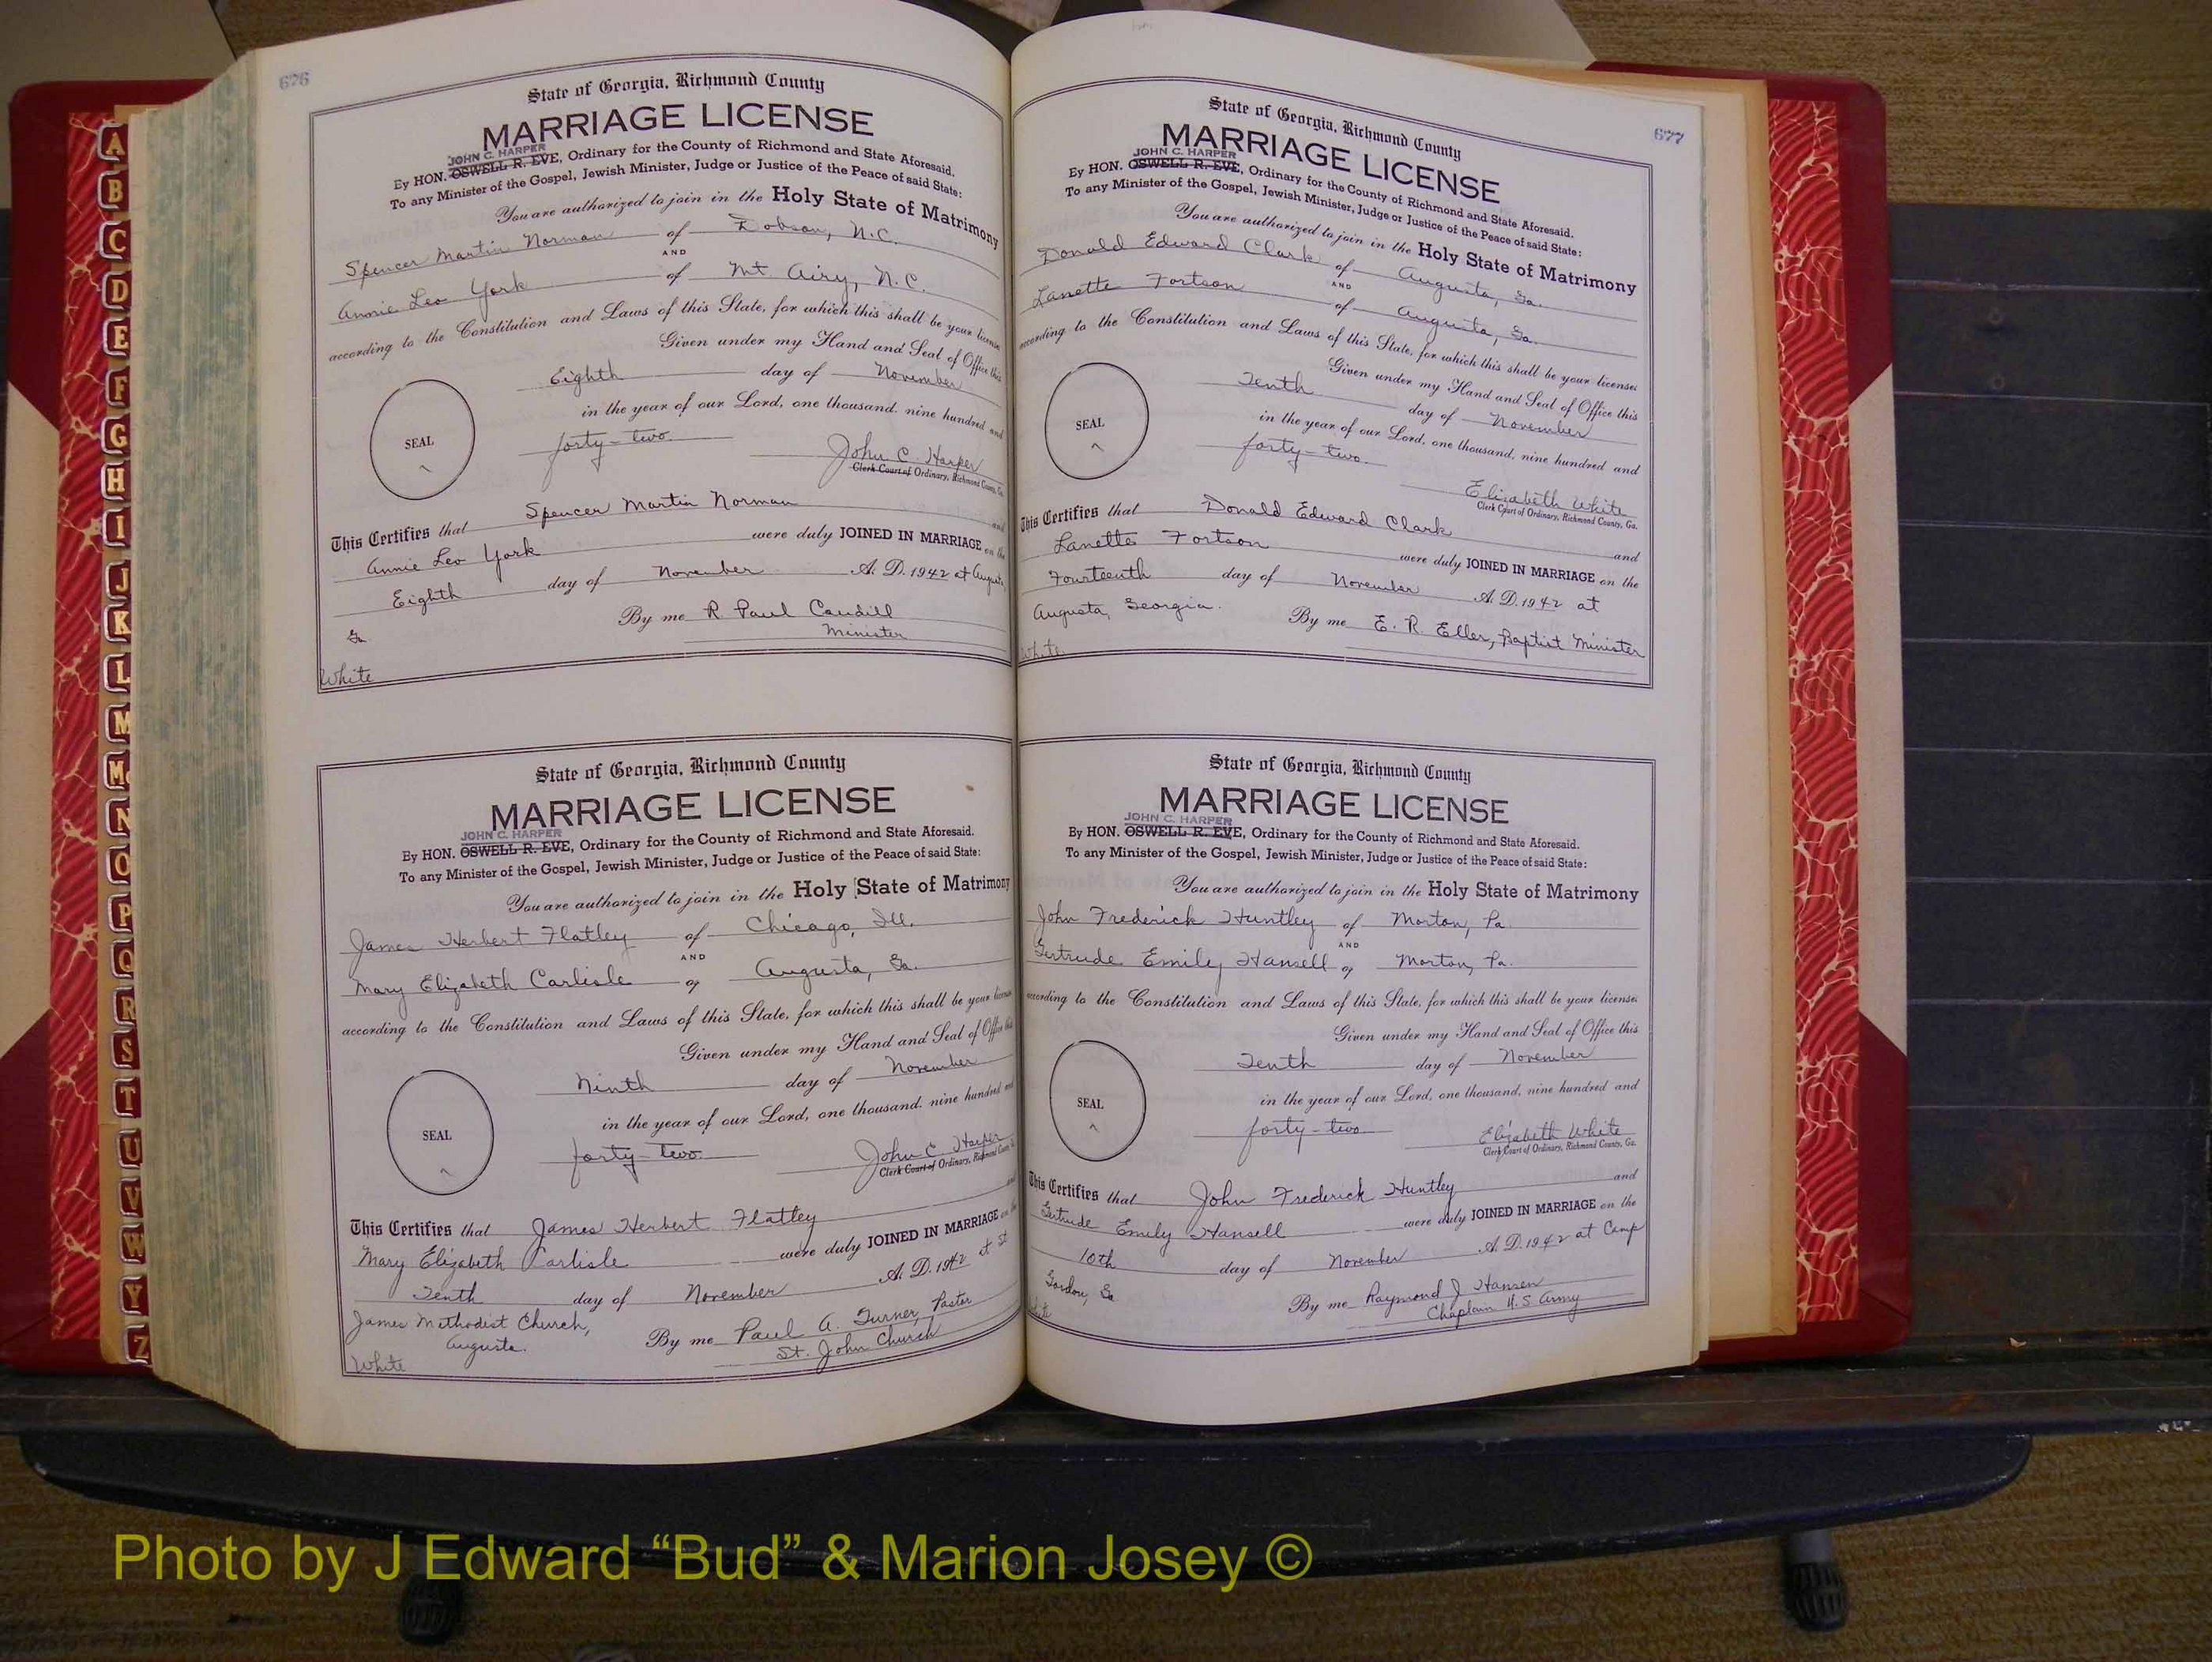 676
State of Georgia, Richmond County
MARRIAGE LICENSE
JOHN C. HARPER
By HON. OSWELL R. EVE, Ordinary for the County of Richmond and State Aforesaid.
To any Minister of the Gospel, Jewish Minister, Judge or Justice of the Peace of said State:
You are authorized to join in the Holy State of Matrimony
Spencer Martin Norman of Dobson, N.C.
AND
Annie Leo York of Mt. Airy, N.C.
according to the Constitution and Laws of this State, for which this shall be your license
Given under my Hand and Seal of Office this
Eighth day of November
in the year of our Lord, one thousand, nine hundred and
SEAL
forty-two. John C. Harper
Clerk Court of Ordinary, Richmond County, Ga.
This Certifies that Spencer Martin Norman and
Annie Leo York were duly JOINED IN MARRIAGE on the
Eighth day of November A. D. 1942 at Augusta,
Ga. By me R. Paul Caudill
Minister
White
State of Georgia, Richmond County
MARRIAGE LICENSE
JOHN C. HARPER
By HON. OSWELL R. EVE, Ordinary for the County of Richmond and State Aforesaid.
To any Minister of the Gospel, Jewish Minister, Judge or Justice of the Peace of said State:
You are authorized to join in the Holy State of Matrimony
James Herbert Flatley of Chicago, Ill.
AND
Mary Elizabeth Carlisle of Augusta, Ga.
according to the Constitution and Laws of this State, for which this shall be your license
Given under my Hand and Seal of Office this
Ninth day of November
in the year of our Lord, one thousand, nine hundred and
SEAL
forty-two. John C. Harper
Clerk Court of Ordinary, Richmond County
This Certifies that James Herbert Flatley and
Mary Elizabeth Carlisle were duly JOINED IN MARRIAGE on the
Tenth day of November A. D. 1942 at St
James Methodist Church,
Augusta. By me Paul A. Turner, Pastor
St. John Church
White
677
State of Georgia, Richmond County
MARRIAGE LICENSE
JOHN C. HARPER
By HON. OSWELL R. EVE, Ordinary for the County of Richmond and State Aforesaid.
To any Minister of the Gospel, Jewish Minister, Judge or Justice of the Peace of said State:
You are authorized to join in the Holy State of Matrimony
Donald Edward Clark of Augusta, Ga.
AND
Lanette Fortson of Augusta, Ga.
according to the Constitution and Laws of this State, for which this shall be your license:
Given under my Hand and Seal of Office this
Tenth day of November
in the year of our Lord, one thousand, nine hundred and
SEAL
forty-two. Elizabeth White
Clerk Court of Ordinary, Richmond County, Ga.
This Certifies that Donald Edward Clark and
Lanette Fortson were duly JOINED IN MARRIAGE on the
Fourteenth day of November A. D. 1942 at
Augusta, Georgia. By me E. R. Eller, Baptist Minister
White
State of Georgia, Richmond County
MARRIAGE LICENSE
JOHN C. HARPER
By HON. OSWELL R. EVE, Ordinary for the County of Richmond and State Aforesaid.
To any Minister of the Gospel, Jewish Minister, Judge or Justice of the Peace of said State:
You are authorized to join in the Holy State of Matrimony
John Frederick Huntley of Morton, Pa.
AND
Gertrude Emily Hansell of Morton, Pa.
according to the Constitution and Laws of this State, for which this shall be your license:
Given under my Hand and Seal of Office this
Tenth day of November
in the year of our Lord, one thousand, nine hundred and
SEAL
forty-two Elizabeth White
Clerk Court of Ordinary, Richmond County, Ga.
This Certifies that John Frederick Huntley and
Gertrude Emily Hansell were duly JOINED IN MARRIAGE on the
10th day of November A. D. 1942 at Camp
Gordon, Ga By me Raymond J Hansen
Chaplain U.S Army
White
A
B
C
D
E
F
G
H
I
J
K
L
M
Mc
N
O
P
Q
R
S
T
U
V
W
Y
Z
Photo by J Edward “Bud” & Marion Josey ©